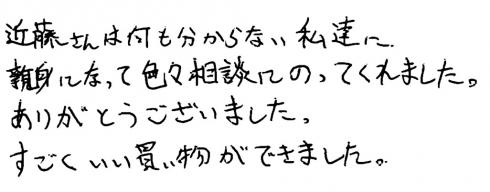 近藤さんは何も分からない私達に
親身になって色々相談にのってくれました。
ありがとうございました。
すごくいい買い物ができました。